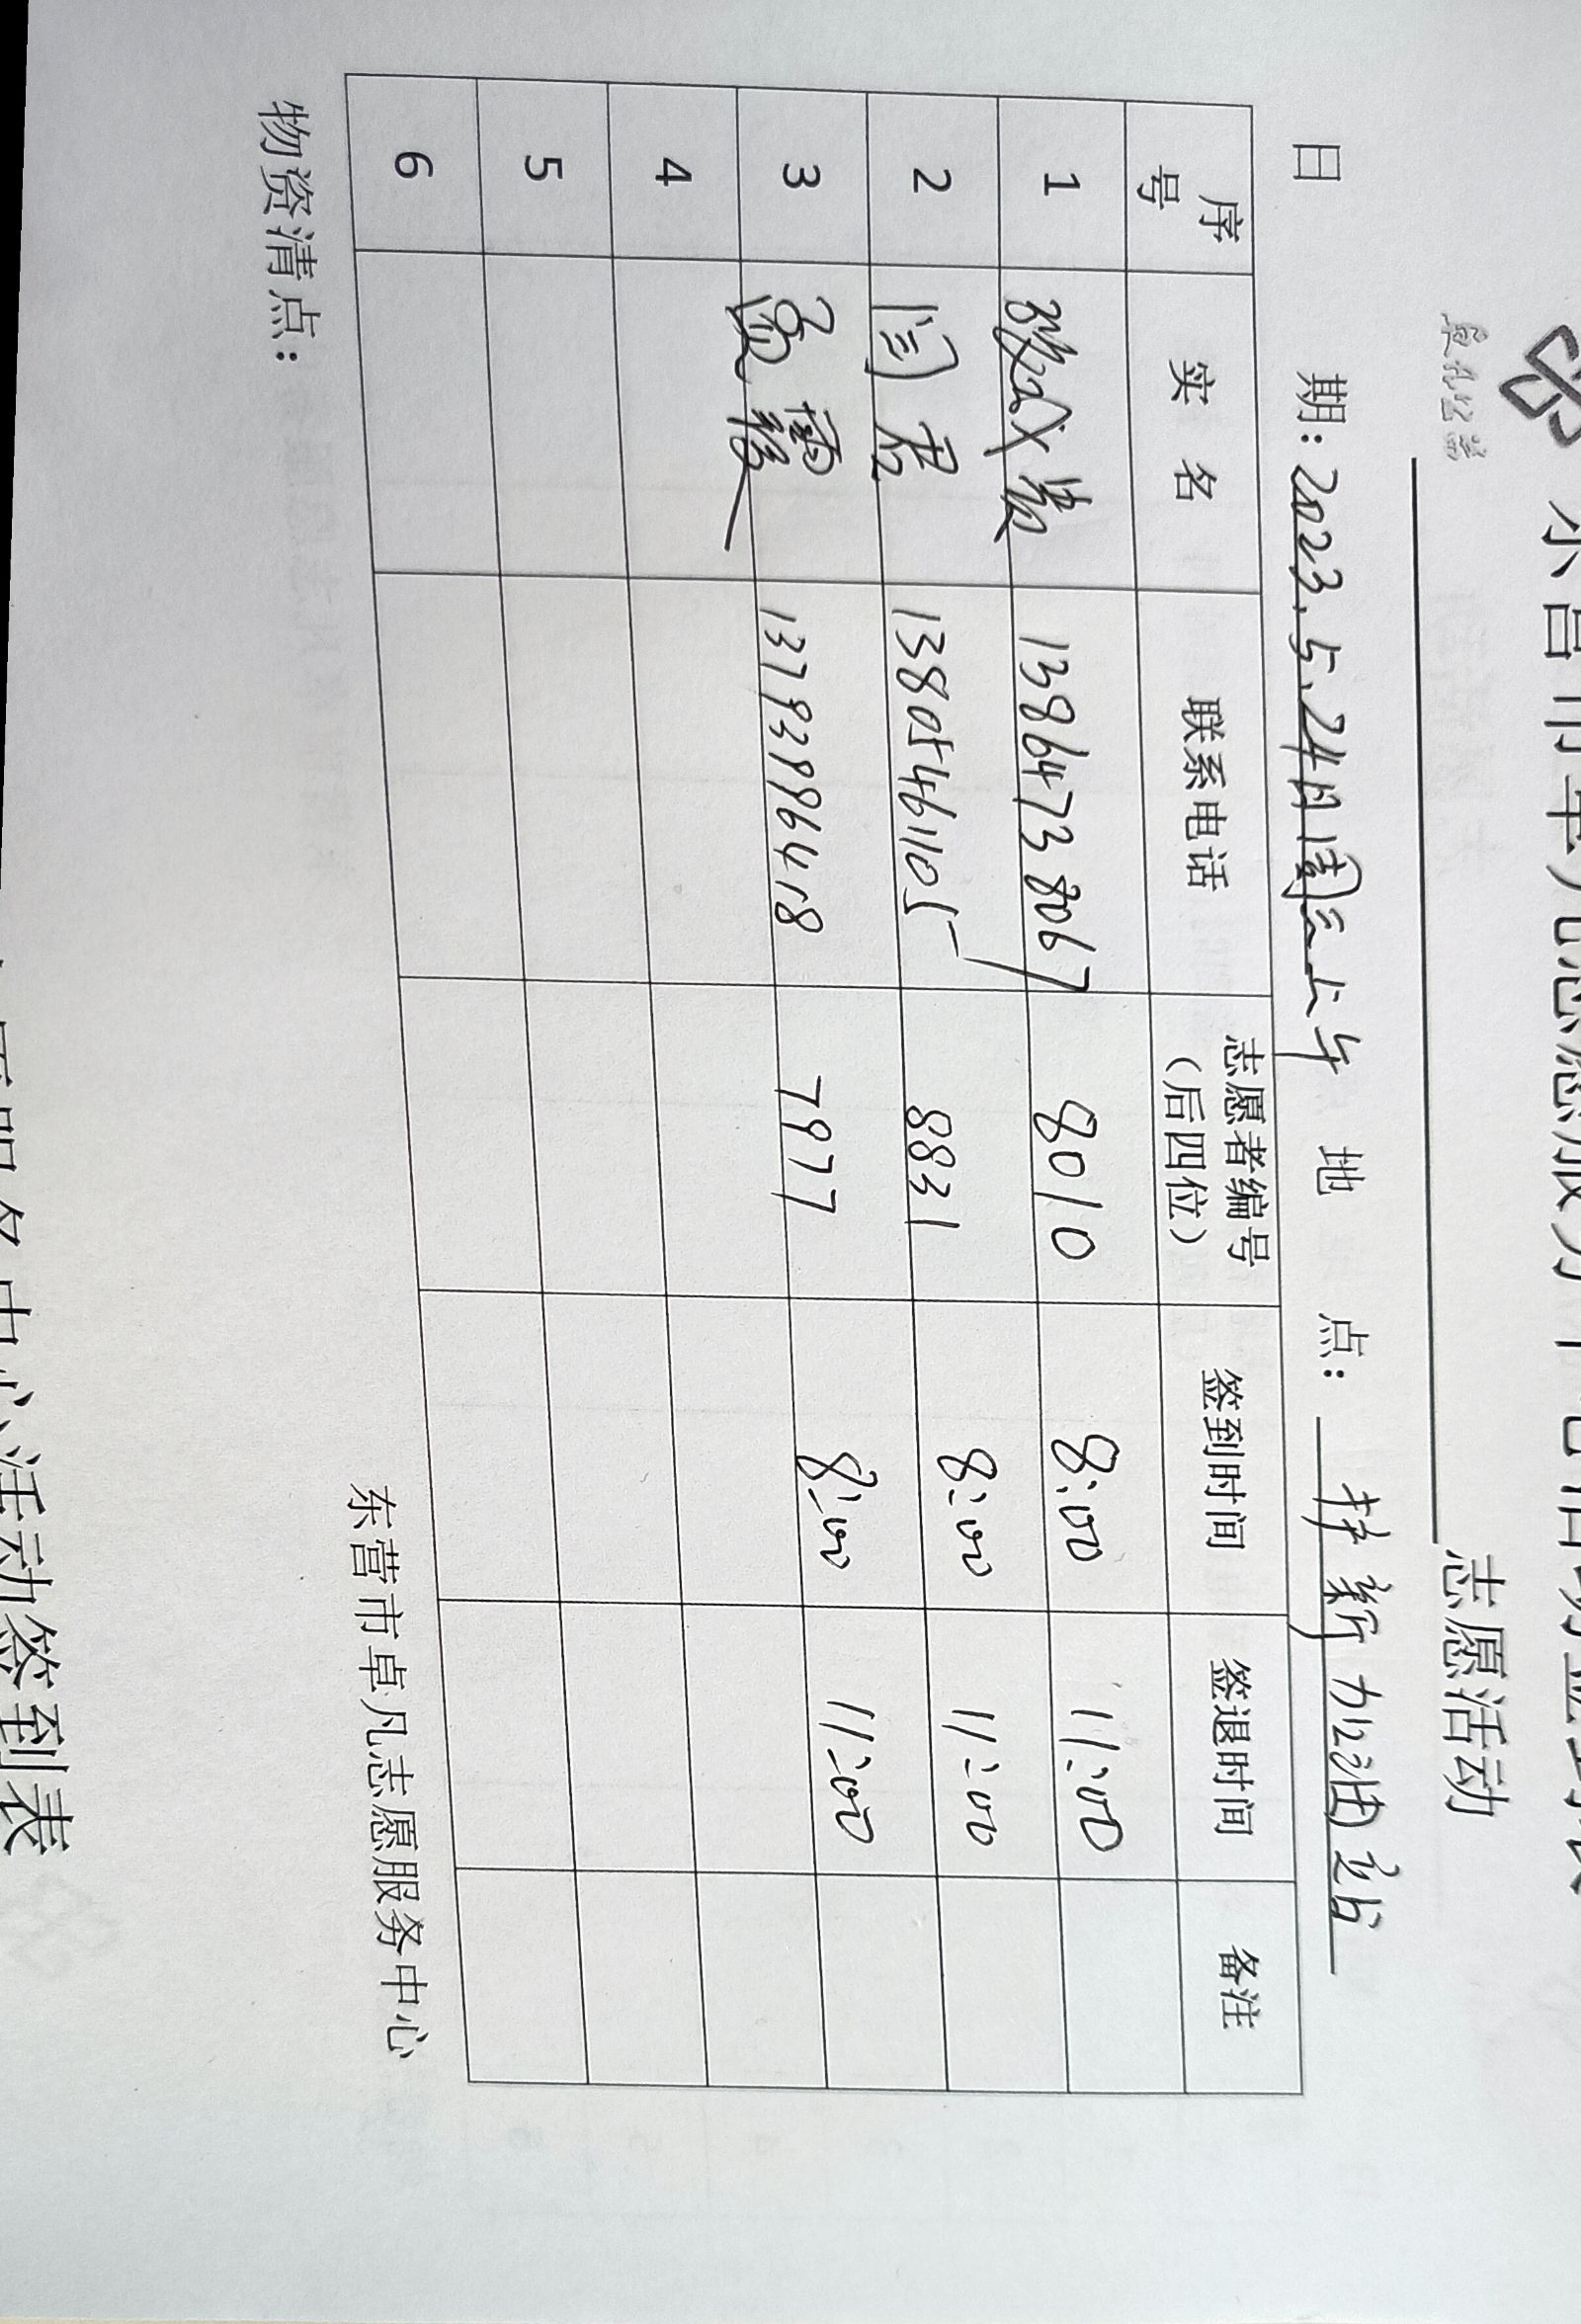 卓凡公益
志愿活动
日 期：2023.5.24日周三上午 地 点：井新加油站
序号 实 名 联系电话 志愿者编号（后四位） 签到时间 签退时间 备注
1 13864738067 8010 8:00 11:00
2 闫君 13805461105 8831 8:00 11:00
3 孟 13793996418 7977 8:00 11:00
4
5
6
东营市卓凡志愿服务中心
物资清点：
愿服务中心活动签到表